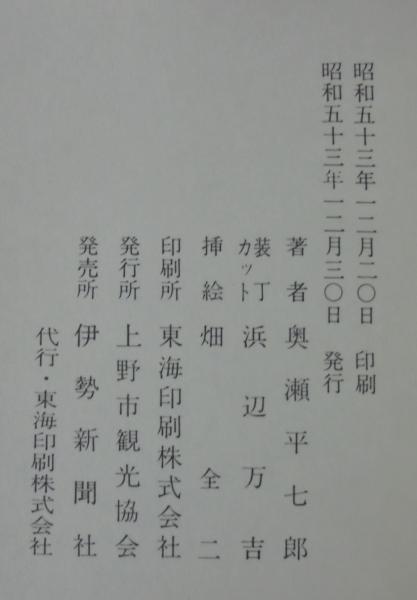 昭和五十三年一二月二〇日 印刷
昭和五十三年一二月三〇日 発行
著者 奥瀬平七郎
装丁 カット 浜辺万吉
挿絵 畑全二
印刷所 東海印刷株式会社
発行所 上野市観光協会
発売所 伊勢新聞社
代行・東海印刷株式会社